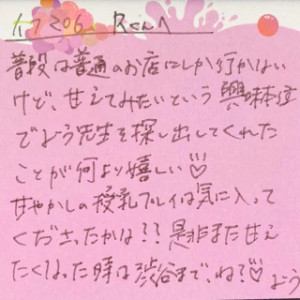 普段は普通のお店にしか行かない
けど、甘えてみたいという興味本位
でよう先生を探し出してくれた
ことが何より嬉しい♡
甘やかしの授乳プレイは気に入って
くださったかは??是非また甘え
たくなった時は渋谷まで、ね?♡
よう